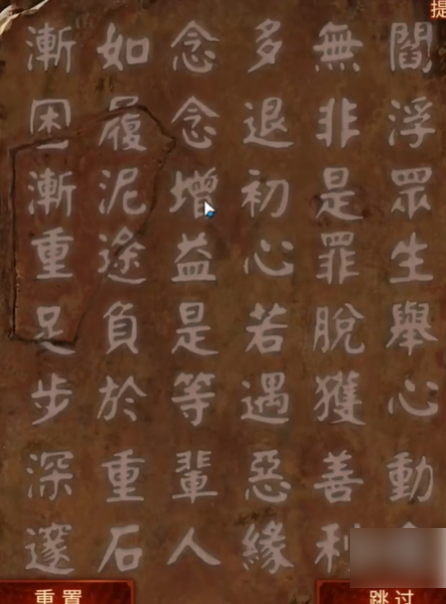 提
閻浮眾生舉心動
無非是罪脫獲善利
多退初心若遇惡緣
念念增益是等輩人
如履泥途負於重石
漸困漸重足步深邃
重置
跳过